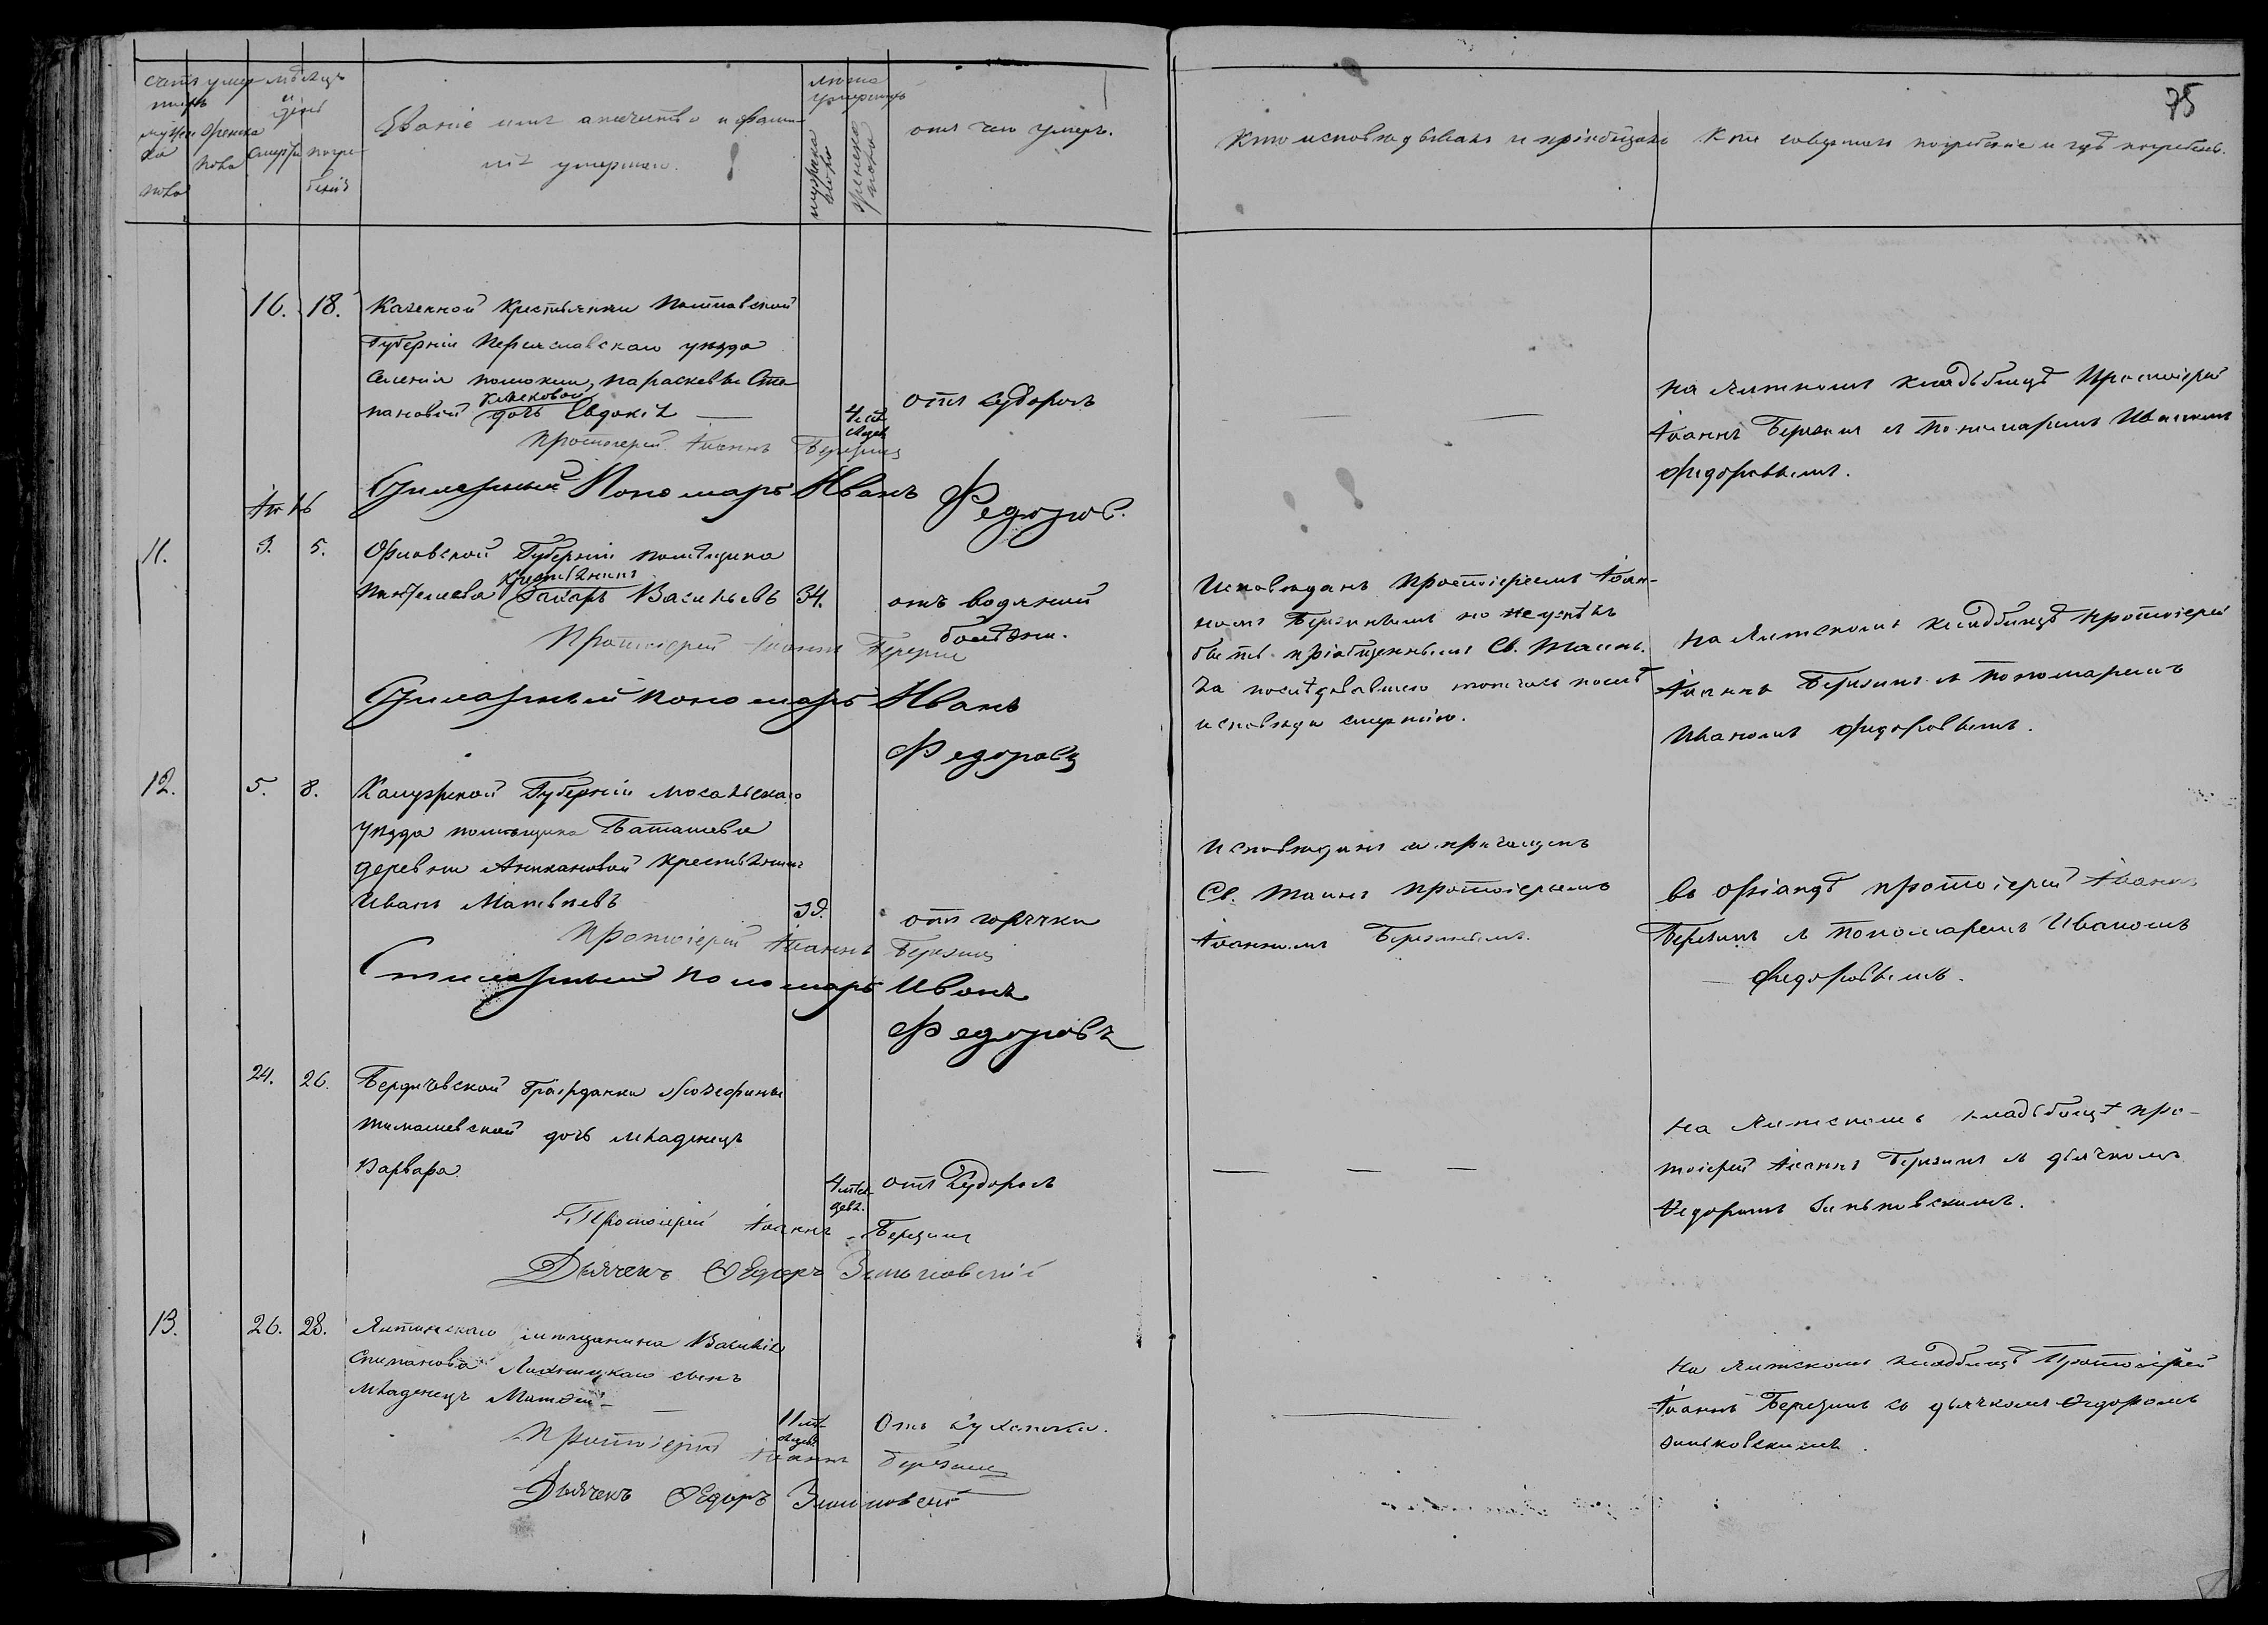 75
счетъ умер-
шихъ
мужеска
пола
женска
пола
мѣсяцъ
и
день
смерти
погре-
бенія
Званіе имя отечество и фами-
лія умершаго.
лѣта
умершихъ
мужеска
пола
женска
пола
отъ чего умеръ.
Кто исповѣдывалъ и пріобщалъ
Кто совершалъ погребеніе и гдѣ погребенъ.
16. 18. Казенной крестьянки Полтавской
Губерніи Переяславскаго уѣзда
селенія Параскевы Сте-
пановой дочь Евдокія
4 мѣс.
отъ судорогъ
На Ялтскомъ кладбищѣ Протоіерей
Іоаннъ Березинъ съ пономаремъ Иваномъ
Федоровымъ.
Протоіерей Іоаннъ Березинъ
Пономарь Иванъ
Федоровъ.
11. 3. 5. Орловской Губерніи помѣщика
крестьянинъ
Захаръ Васильевъ 34.
отъ водяной
болѣзни.
Исповѣданъ Протоіереемъ Іоан-
номъ Березинымъ но не успѣлъ
быть пріобщеннымъ Св. Таинъ.
За послѣдовавшею тотчасъ послѣ
исповѣди смертію.
На Ялтскомъ кладбищѣ протоіерей
Іоаннъ Березинъ съ пономаремъ
Иваномъ Федоровымъ.
Протоіерей Іоаннъ Березинъ
пономарь Иванъ
Федоровъ
12. 5. 8. Калужской Губерніи Мосальскаго
уѣзда помѣщика Баташева
деревни крестьянинъ
Иванъ Матвѣевъ
отъ горячки
Исповѣданъ и причащенъ
Св. Таинъ протоіереемъ
Іоанномъ Березинымъ.
въ Оріандѣ протоіерей Іоаннъ
Березинъ съ пономаремъ Иваномъ
Федоровымъ.
Протоіерей Іоаннъ Березинъ
пономарь Иванъ
Федоровъ
24. 26. Бердичевской Гражданки Іозефины
дочь младенецъ
Варвара
4 мѣся.
отъ Судорогъ
На Ялтскомъ кладбищѣ про-
тоіерей Іоаннъ Березинъ съ дьячкомъ
Ѳедоромъ Зиньковскимъ.
Протоіерей Іоаннъ Березинъ
Дьячекъ Ѳедоръ Зиньковскій
13. 26. 28. Ялтинскаго мѣщанина Василія
Степанова сынъ
младенецъ Матвѣй
11 мѣ
Отъ Сухотки.
На Ялтскомъ кладбищѣ Протоіерей
Іоаннъ Березинъ съ дьячкомъ Ѳедоромъ
Зиньковскимъ.
Протоіерей Іоаннъ Березинъ
Дьячекъ Ѳедоръ Зиньковскій